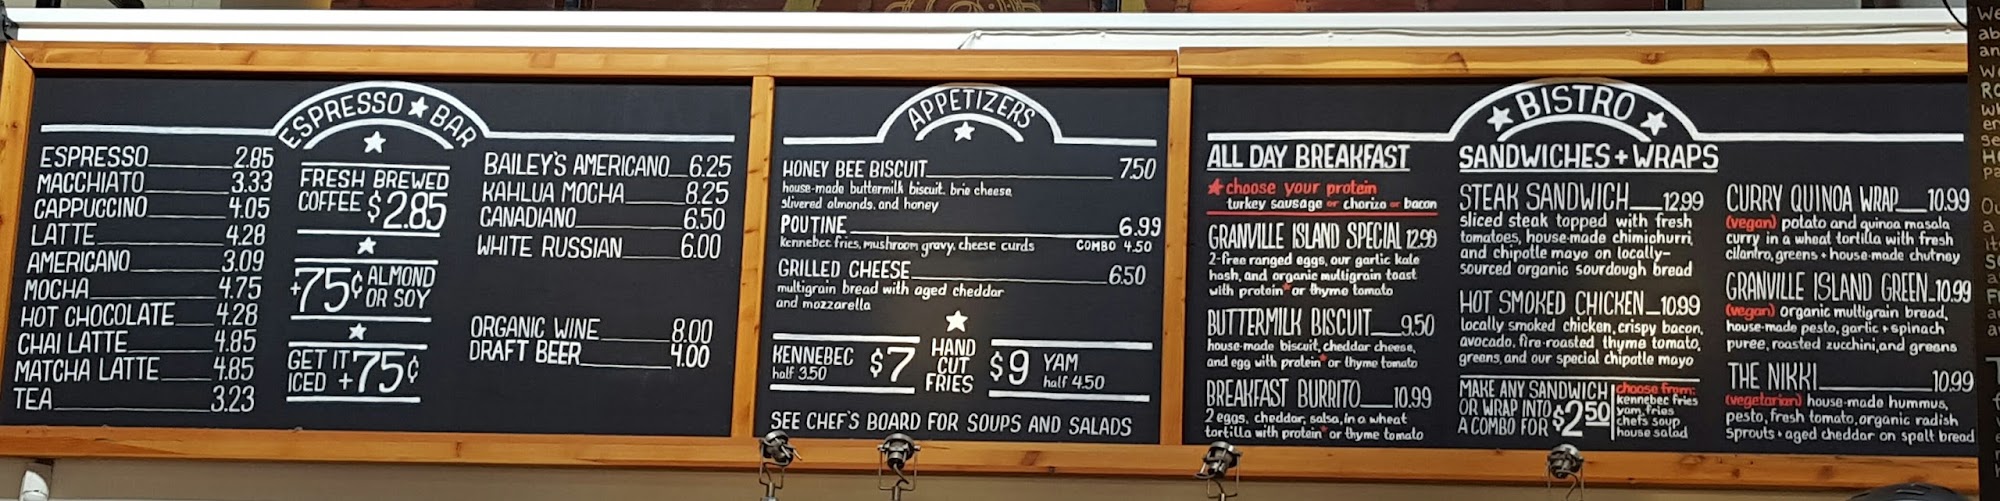 ESPRESSO ★ BAR
ESPRESSO 2.85
MACCHIATO 3.33
CAPPUCCINO 4.05
LATTE 4.28
AMERICANO 3.09
MOCHA 4.75
HOT CHOCOLATE 4.28
CHAI LATTE 4.85
MATCHA LATTE 4.85
TEA 3.23
FRESH BREWED
COFFEE $2.85
+75¢ ALMOND
OR SOY
GET IT
ICED +75¢
BAILEY'S AMERICANO 6.25
KAHLUA MOCHA 8.25
CANADIANO 6.50
WHITE RUSSIAN 6.00
ORGANIC WINE 8.00
DRAFT BEER 4.00
APPETIZERS
HONEY BEE BISCUIT 7.50
house-made buttermilk biscuit, brie cheese,
slivered almonds, and honey
POUTINE 6.99
kennebec fries, mushroom gravy, cheese curds COMBO 4.50
GRILLED CHEESE 6.50
multigrain bread with aged cheddar
and mozzarella
KENNEBEC
half 3.50
$7
HAND
CUT
FRIES
$9 YAM
half 4.50
SEE CHEF'S BOARD FOR SOUPS AND SALADS
★ BISTRO ★
ALL DAY BREAKFAST
★ choose your protein
turkey sausage or chorizo or bacon
GRANVILLE ISLAND SPECIAL 12.99
2-free ranged eggs, our garlic kale
hash, and organic multigrain toast
with protein* or thyme tomato
BUTTERMILK BISCUIT 9.50
house-made biscuit, cheddar cheese,
and egg with protein* or thyme tomato
BREAKFAST BURRITO 10.99
2 eggs, cheddar, salsa, in a wheat
tortilla with protein* or thyme tomato
SANDWICHES + WRAPS
STEAK SANDWICH 12.99
sliced steak topped with fresh
tomatoes, house-made chimichurri,
and chipotle mayo on locally-
sourced organic sourdough bread
HOT SMOKED CHICKEN 10.99
locally smoked chicken, crispy bacon,
avocado, fire-roasted thyme tomato,
greens, and our special chipotle mayo
MAKE ANY SANDWICH
OR WRAP INTO
A COMBO FOR $2.50
choose from:
kennebec fries
yam fries
chefs soup
house salad
CURRY QUINOA WRAP 10.99
(vegan) potato and quinoa masala
curry in a wheat tortilla with fresh
cilantro, greens + house-made chutney
GRANVILLE ISLAND GREEN 10.99
(vegan) organic multigrain bread,
house-made pesto, garlic + spinach
puree, roasted zucchini, and greens
THE NIKKI 10.99
(vegetarian) house-made hummus,
pesto, fresh tomato, organic radish
sprouts + aged cheddar on spelt bread